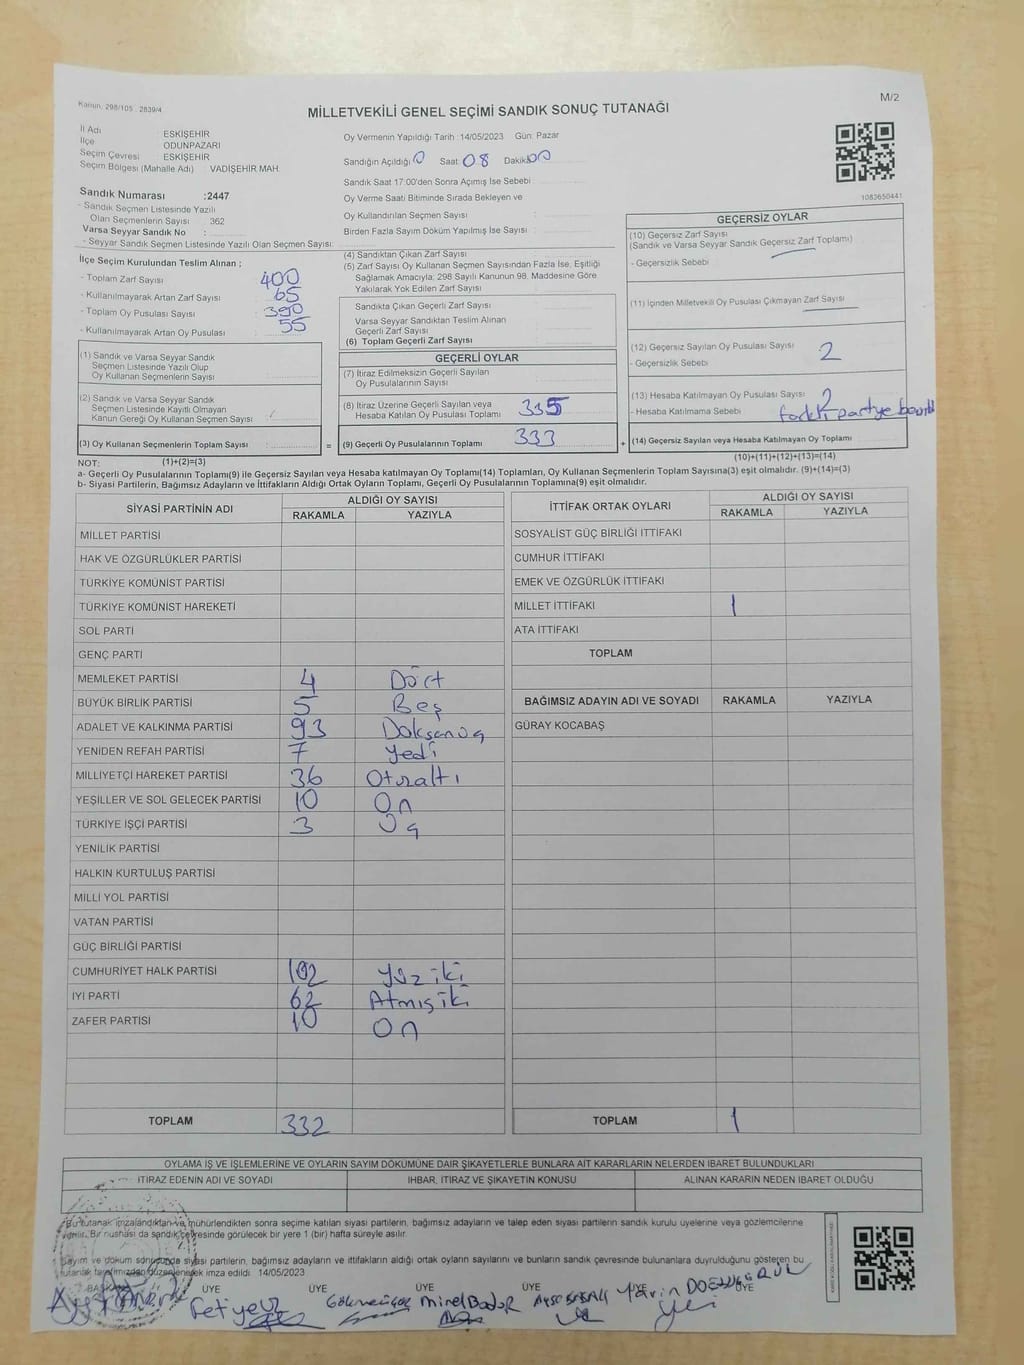 Kanun: 298/105 , 2839/4
M/2
MİLLETVEKİLİ GENEL SEÇİMİ SANDIK SONUÇ TUTANAĞI
İl Adı : ESKİŞEHİR
İlçe : ODUNPAZARI
Seçim Çevresi : ESKİŞEHİR
Seçim Bölgesi (Mahalle Adı) : VADİŞEHİR MAH.
Sandık Numarası :2447
- Sandık Seçmen Listesinde Yazılı
Olan Seçmenlerin Sayısı : 362
Varsa Seyyar Sandık No :
- Seyyar Sandık Seçmen Listesinde Yazılı Olan Seçmen Sayısı:
Oy Vermenin Yapıldığı Tarih :14/05/2023 Gün: Pazar
Sandığın Açıldığı 0 Saat: 08 Dakika: 00
Sandık Saat 17:00'den Sonra Açımış İse Sebebi
Oy Verme Saati Bitiminde Sırada Bekleyen ve
Oy Kullandırılan Seçmen Sayısı
Birden Fazla Sayım Döküm Yapılmış İse Sayısı
1083650441
İlçe Seçim Kurulundan Teslim Alınan ;
- Toplam Zarf Sayısı 400
- Kullanılmayarak Artan Zarf Sayısı 65
- Toplam Oy Pusulası Sayısı 390
- Kullanılmayarak Artan Oy Pusulası 55
(1) Sandık ve Varsa Seyyar Sandık
Seçmen Listesinde Yazılı Olup
Oy Kullanan Seçmenlerin Sayısı
(2) Sandık ve Varsa Seyyar Sandık
Seçmen Listesinde Kayıtlı Olmayan
Kanun Gereği Oy Kullanan Seçmen Sayısı
(3) Oy Kullanan Seçmenlerin Toplam Sayısı =
(4) Sandıktan Çıkan Zarf Sayısı
(5) Zarf Sayısı Oy Kullanan Seçmen Sayısından Fazla İse, Eşitliği
Sağlamak Amacıyla; 298 Sayılı Kanunun 98. Maddesine Göre
Yakılarak Yok Edilen Zarf Sayısı
Sandıkta Çıkan Geçerli Zarf Sayısı
Varsa Seyyar Sandıktan Teslim Alınan
Geçerli Zarf Sayısı
(6) Toplam Geçerli Zarf Sayısı
GEÇERLİ OYLAR
(7) İtiraz Edilmeksizin Geçerli Sayılan
Oy Pusulalarının Sayısı
(8) İtiraz Üzerine Geçerli Sayılan veya
Hesaba Katılan Oy Pusulası Toplamı 335
(9) Geçerli Oy Pusulalarının Toplamı 333 +
GEÇERSİZ OYLAR
(10) Geçersiz Zarf Sayısı
(Sandık ve Varsa Seyyar Sandık Geçersiz Zarf Toplamı)
- Geçersizlik Sebebi
(11) İçinden Milletvekili Oy Pusulası Çıkmayan Zarf Sayısı
(12) Geçersiz Sayılan Oy Pusulası Sayısı 2
- Geçersizlik Sebebi
(13) Hesaba Katılmayan Oy Pusulası Sayısı 2
- Hesaba Katılmama Sebebi farklı partiye
(14) Geçersiz Sayılan veya Hesaba Katılmayan Oy Toplamı
(10)+(11)+(12)+(13)=(14)
NOT: (1)+(2)=(3)
a- Geçerli Oy Pusulalarının Toplamı(9) ile Geçersiz Sayılan veya Hesaba katılmayan Oy Toplamı(14) Toplamları, Oy Kullanan Seçmenlerin Toplam Sayısına(3) eşit olmalıdır. (9)+(14)=(3)
b- Siyasi Partilerin, Bağımsız Adayların ve İttifakların Aldığı Oyların Toplamı, Geçerli Oy Pusulalarının Toplamına(9) eşit olmalıdır.
SİYASİ PARTİNİN ADI ALDIĞI OY SAYISI
RAKAMLA YAZIYLA
MİLLET PARTİSİ
HAK VE ÖZGÜRLÜKLER PARTİSİ
TÜRKİYE KOMÜNİST PARTİSİ
TÜRKİYE KOMÜNİST HAREKETİ
SOL PARTİ
GENÇ PARTİ
MEMLEKET PARTİSİ 4 Dört
BÜYÜK BİRLİK PARTİSİ 5 Beş
ADALET VE KALKINMA PARTİSİ 93 Doksanüç
YENİDEN REFAH PARTİSİ 7 Yedi
MİLLİYETÇİ HAREKET PARTİSİ 36 Otuzaltı
YEŞİLLER VE SOL GELECEK PARTİSİ 10 On
TÜRKİYE İŞÇİ PARTİSİ 3 Üç
YENİLİK PARTİSİ
HALKIN KURTULUŞ PARTİSİ
MİLLİ YOL PARTİSİ
VATAN PARTİSİ
GÜÇ BİRLİĞİ PARTİSİ
CUMHURİYET HALK PARTİSİ 102 Yüz iki
İYİ PARTİ 62 Atmış iki
ZAFER PARTİSİ 10 On
TOPLAM 332
İTTİFAK ORTAK OYLARI ALDIĞI OY SAYISI
RAKAMLA YAZIYLA
SOSYALİST GÜÇ BİRLİĞİ İTTİFAKI
CUMHUR İTTİFAKI
EMEK VE ÖZGÜRLÜK İTTİFAKI
MİLLET İTTİFAKI 1
ATA İTTİFAKI
TOPLAM
BAĞIMSIZ ADAYIN ADI VE SOYADI RAKAMLA YAZIYLA
GÜRAY KOCABAŞ
TOPLAM 1
OYLAMA İŞ VE İŞLEMLERİNE VE OYLARIN SAYIM DÖKÜMÜNE DAİR ŞİKAYETLERLE BUNLARA AİT KARARLARIN NELERDEN İBARET BULUNDUKLARI
İTİRAZ EDENİN ADI VE SOYADI İHBAR, İTİRAZ VE ŞİKAYETİN KONUSU ALINAN KARARIN NEDEN İBARET OLDUĞU
Bu tutanak imzalandıktan ve mühürlendikten sonra seçime katılan siyasi partilerin, bağımsız adayların ve talep eden siyasi partilerin sandık kurulu üyelerine veya gözlemcilerine
verilir. Bir nushası da sandık çevresinde görülecek bir yere 1 (bir) hafta süreyle asılır.
Sayım ve döküm sonucunda siyasi partilerin, bağımsız adayların ve ittifakların aldığı ortak oyların sayılarını ve bunların sandık çevresinde bulunanlara duyrulduğunu gösteren bu
tutanak tarafımızdan düzenlenerek imza edildi. 14/05/2023
BAŞKAN ÜYE ÜYE ÜYE ÜYE ÜYE ÜYE